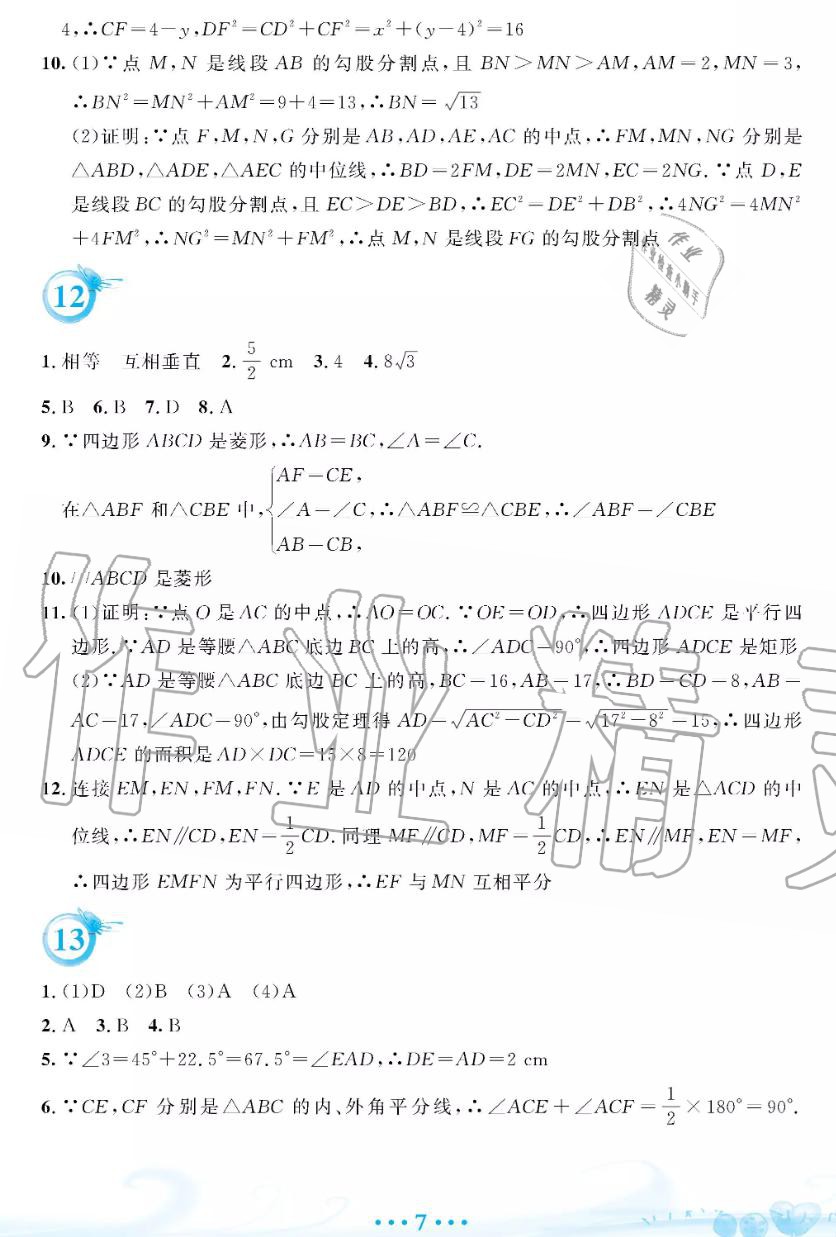 4,∴CF=4-y,DF²=CD²+CF²=x²+(y-4)²=16
10. (1)∵点 M,N 是线段 AB 的勾股分割点,且 BN>MN>AM,AM=2,MN=3,
∴BN²=MN²+AM²=9+4=13,∴BN=√13
(2)证明:∵点 F,M,N,G 分别是 AB,AD,AE,AC 的中点,∴FM,MN,NG 分别是
△ABD,△ADE,△AEC 的中位线,∴BD=2FM,DE=2MN,EC=2NG. ∵点 D,E
是线段 BC 的勾股分割点,且 EC>DE>BD,∴EC²=DE²+DB²,∴4NG²=4MN²
+4FM²,∴NG²=MN²+FM²,∴点 M,N 是线段 FG 的勾股分割点
作业
作业检查小助手
精灵
12
1. 相等 互相垂直 2. 5/2 cm 3. 4 4. 8√3
5. B 6. B 7. D 8. A
9. ∵四边形 ABCD 是菱形,∴AB=BC,∠A=∠C.
AF=CE,
在△ABF 和△CBE 中,{∠A=∠C,∴△ABF≌△CBE,∴∠ABF=∠CBE
AB=CB,
10. ▱ABCD 是菱形
11. (1)证明:∵点 O 是 AC 的中点,∴AO=OC. ∵OE=OD,∴四边形 ADCE 是平行四
边形. ∵AD 是等腰△ABC 底边 BC 上的高,∴∠ADC=90°,∴四边形 ADCE 是矩形
(2)∵AD 是等腰△ABC 底边 BC 上的高,BC=16,AB=17,∴BD=CD=8,AB=
AC=17,∠ADC=90°,由勾股定理得 AD=√(AC²-CD²)=√(17²-8²)=15,∴四边形
ADCE 的面积是 AD×DC=15×8=120
12. 连接 EM,EN,FM,FN. ∵E 是 AD 的中点,N 是 AC 的中点,∴EN 是△ACD 的中
位线,∴EN∥CD,EN=1/2CD. 同理 MF∥CD,MF=1/2CD,∴EN∥MF,EN=MF,
∴四边形 EMFN 为平行四边形,∴EF 与 MN 互相平分
作业精灵
13
1. (1)D (2)B (3)A (4)A
2. A 3. B 4. B
5. ∵∠3=45°+22.5°=67.5°=∠EAD,∴DE=AD=2 cm
6. ∵CE,CF 分别是△ABC 的内、外角平分线,∴∠ACE+∠ACF=1/2×180°=90°.
••• 7 •••